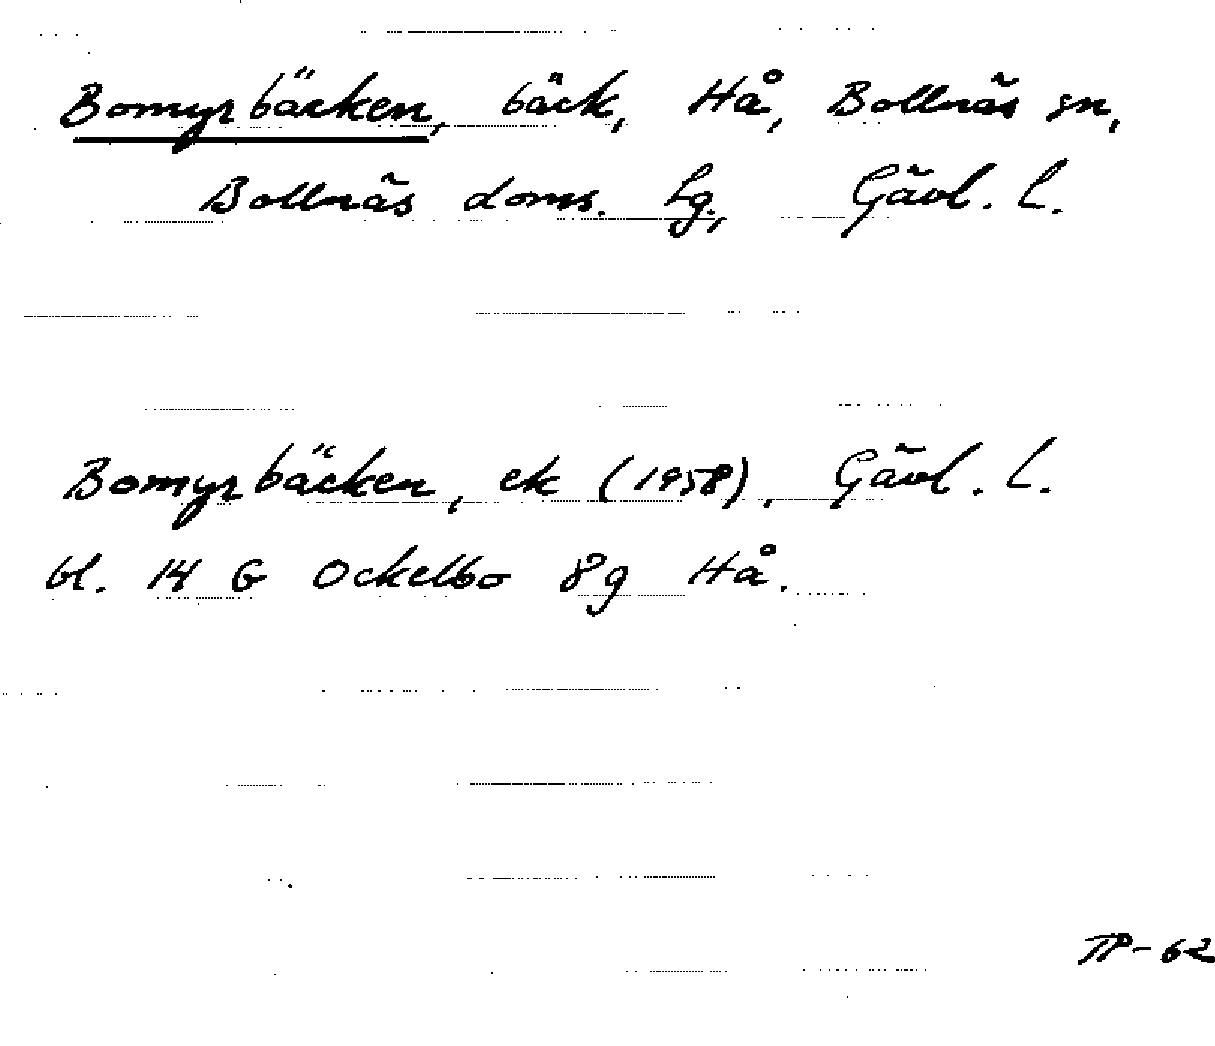 Bomyrbäcken, bäck, Hå, Bollnäs sn,
Bollnäs doms. Lg., Gävl. L.
Bomyrbäcken, ek (1958). Gävl. L.
bl. 14 G Ockelbo 8g Hå.
TP-62